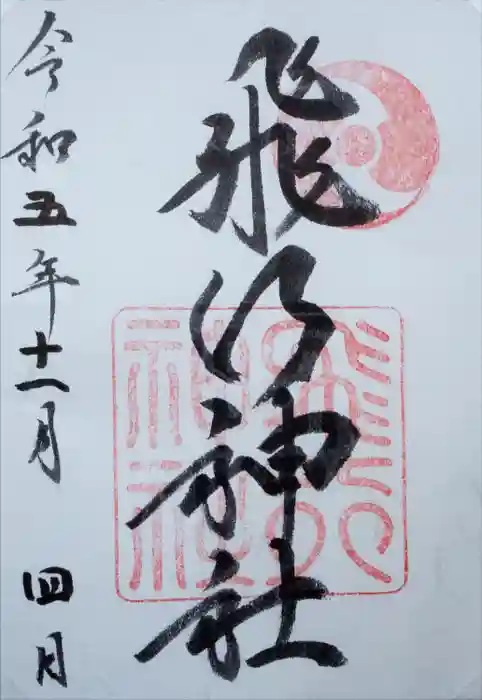 飛行神社
令和五年十一月 四日
飛行
神社